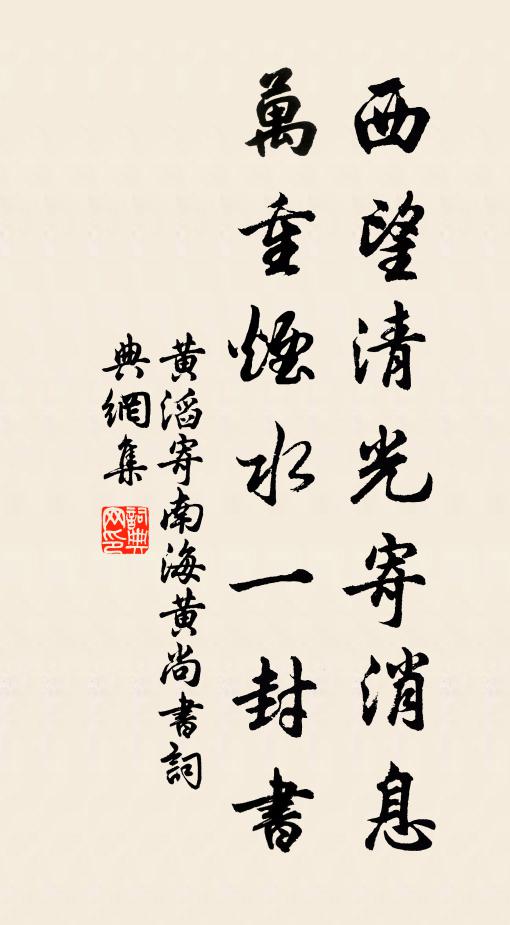 西望清光寄消息
萬重煙水一封書
黃滔寄南海黃尚書詞
典網集
詞典
网印